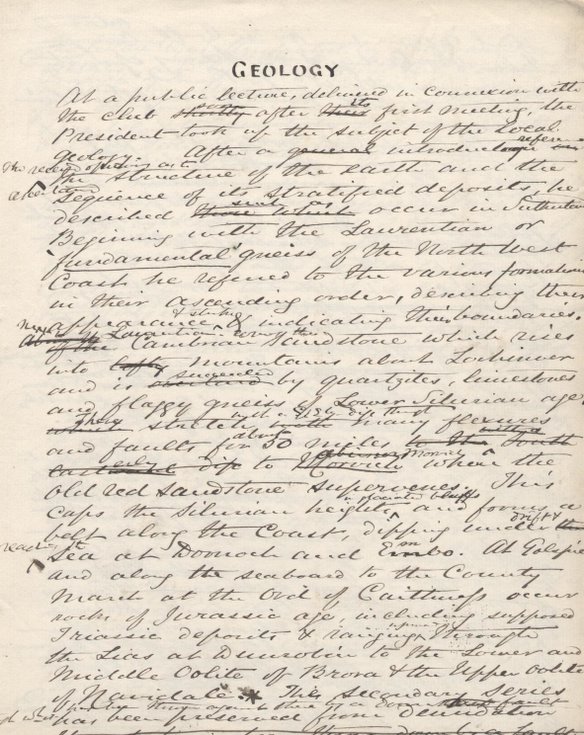 GEOLOGY
At a public lecture, delivered in connexion with
the Club shortly after its first meeting, the
President took up the subject of the Local
geology. After a general introduction
reference
the structure of the earth and the
sequence of its stratified deposits, he
described such as occur in Sutherland
Beginning with the Laurentian or
fundamental gneiss of the North West
Coast he referred to the various formations
in their ascending order, describing their
appearance & indicating their boundaries.
Cambrian Sandstone which rises
into lofty mountains about Lochinver
and is succeeded by quartzites, limestones
and flaggy gneiss of Lower Silurian age.
They stretch with many flexures
and faults for about 50 miles
to where the
Old red Sandstone supervenes. This
caps the Silurian heights and forms a
belt along the Coast, dipping under the
reaching
Sea at Dornoch and Embo. At Golspie
and along the seaboard to the County
March at the Ord of Caithness occur
rocks of Jurassic age, including supposed
Triassic deposits & ranging through
the Lias at Dunrobin to the Lower and
Middle Oolite of Brora & the Upper Oolite
of Navidale.* This secondary series
has been preserved from denudation